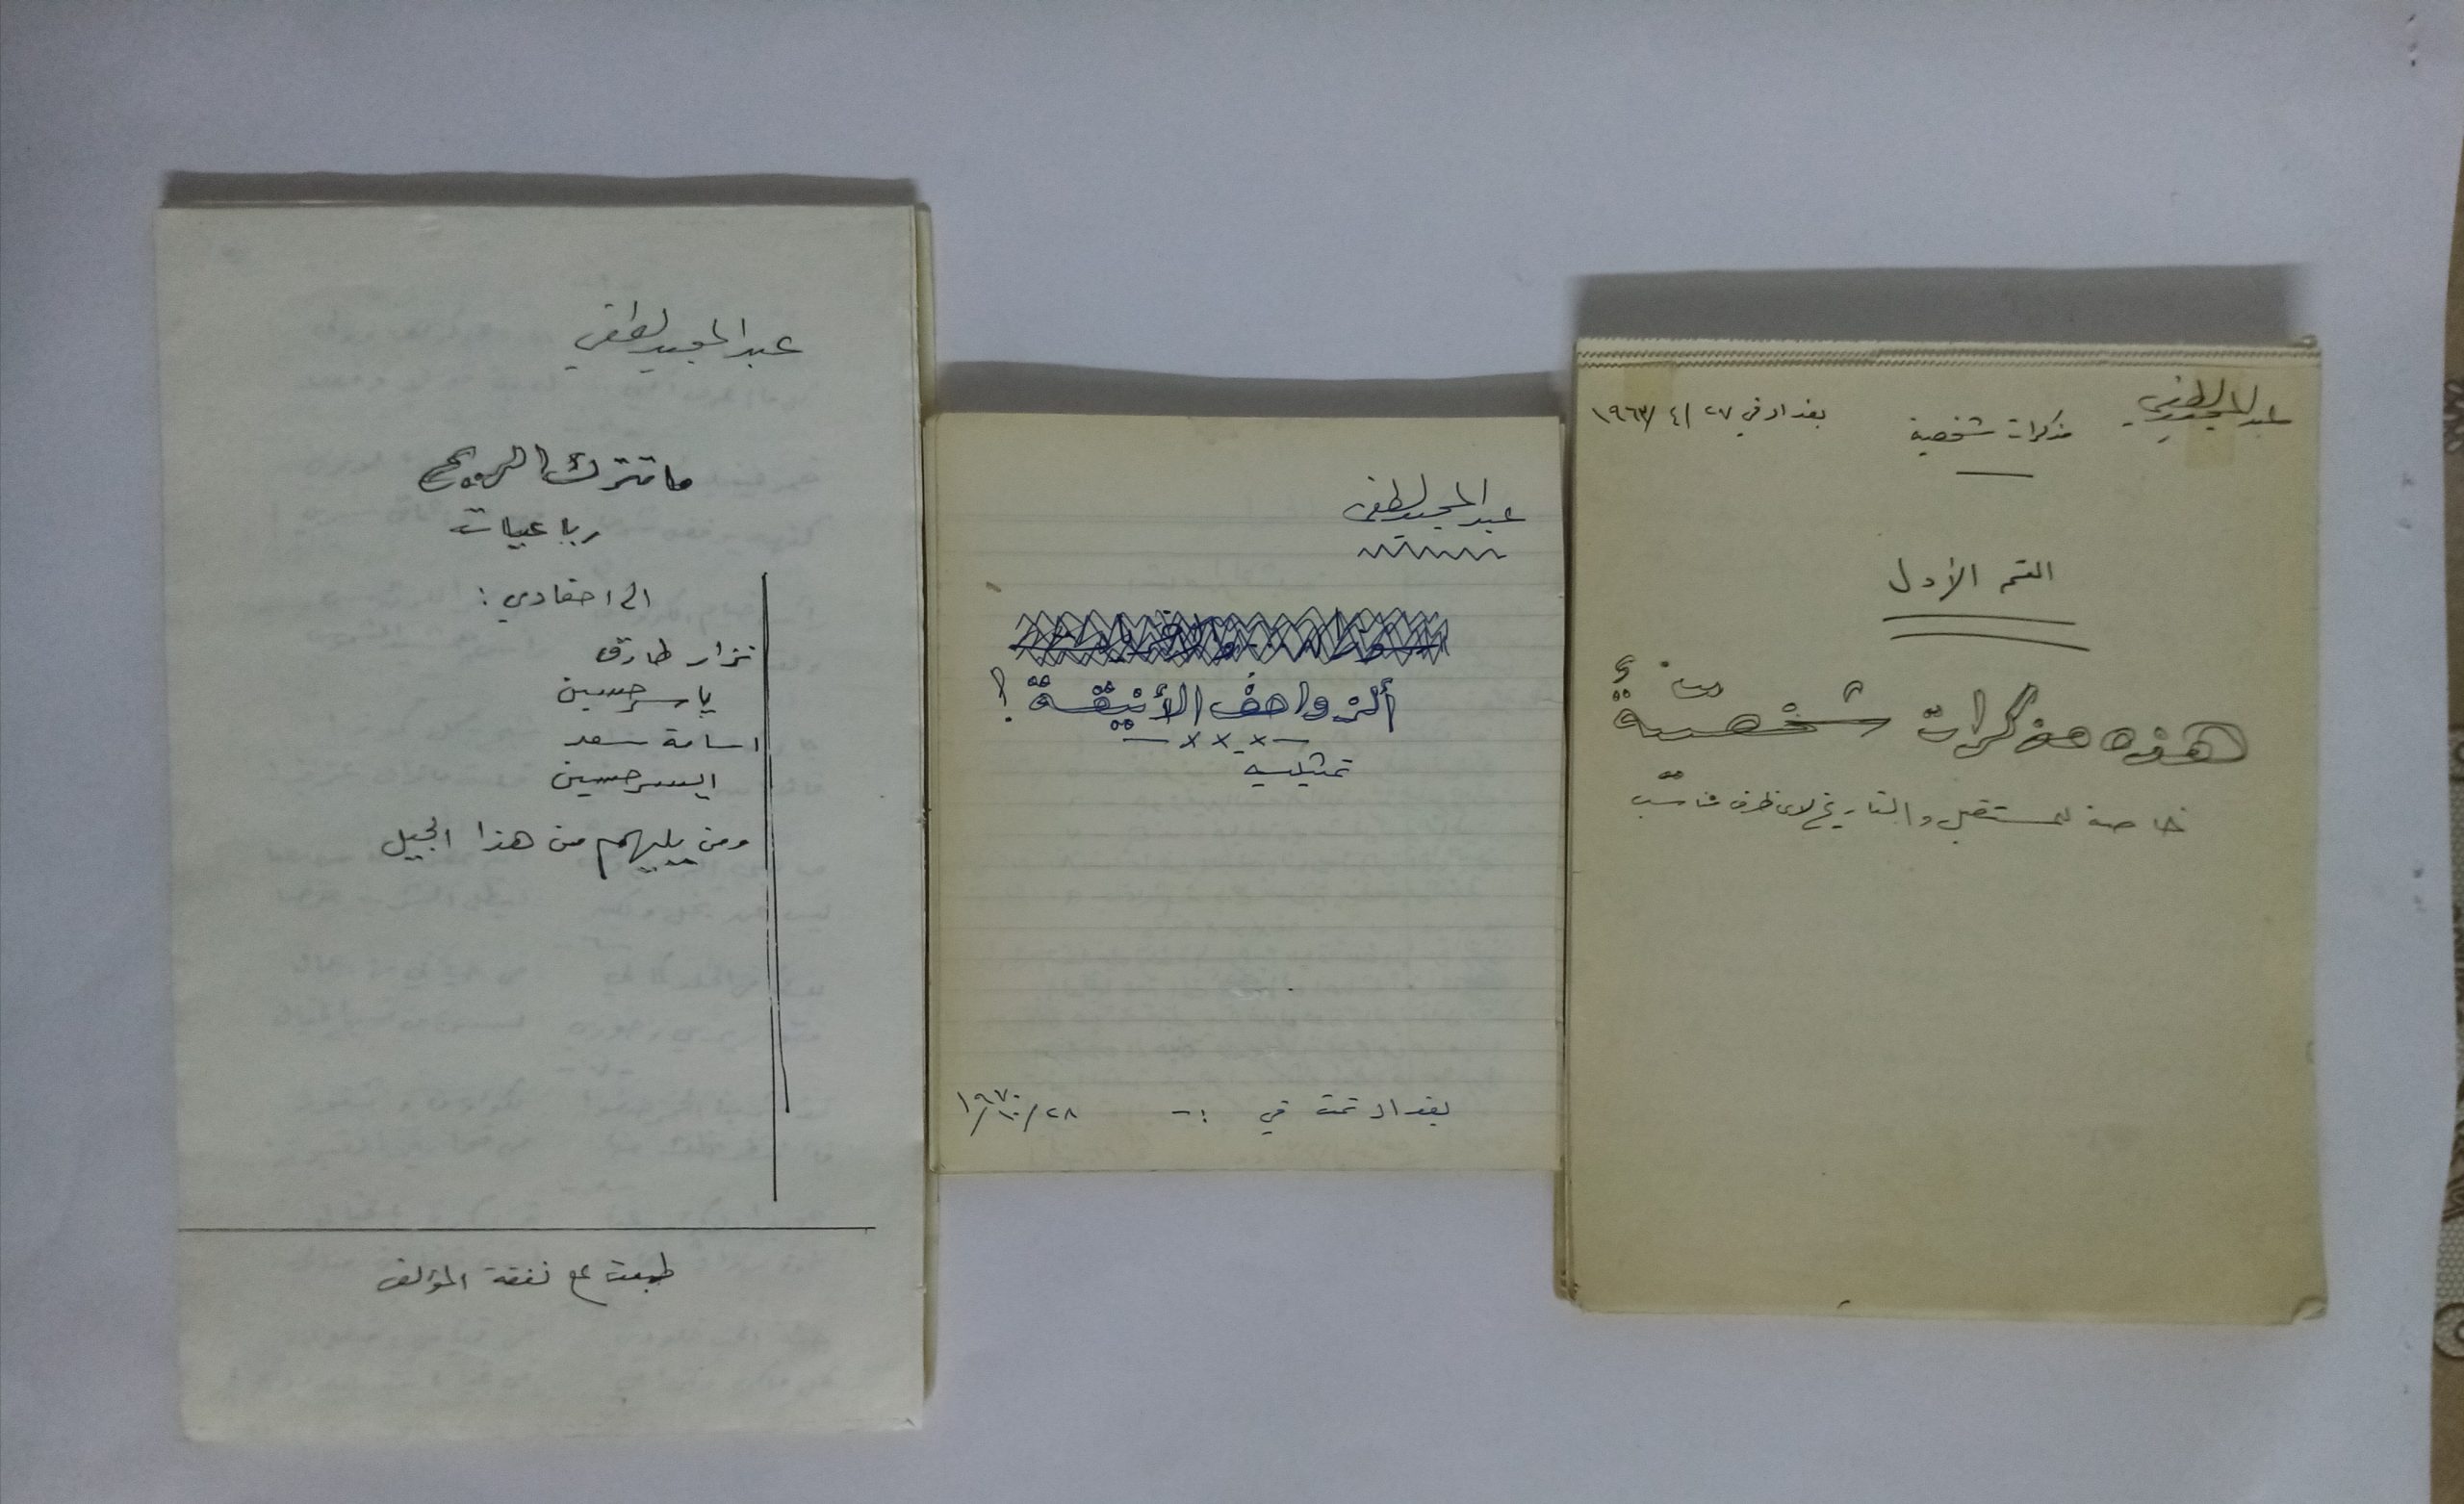 عبد المجيد لطفي
بغداد في ٢٧/٤/١٩٦٣
مذكرات شخصية
القسم الأول
هذه مذكرات شخصية
خاصة للمستقبل والتاريخ لاى ظرف مناسب
عبد المجيد لطفي
ألزواحف الأنيقة!
تمثيلية
بغداد تمت في :- ٢٨/١٠/١٩٧٠
عبد المجيد لطفي
ما تترك الريح
رباعيات
الى احفادي :
نزار طارق
ياسر حسين
اسامة سعد
ايسر حسين
ومن يليهم من هذا الجيل
طبعت على نفقة المؤلف